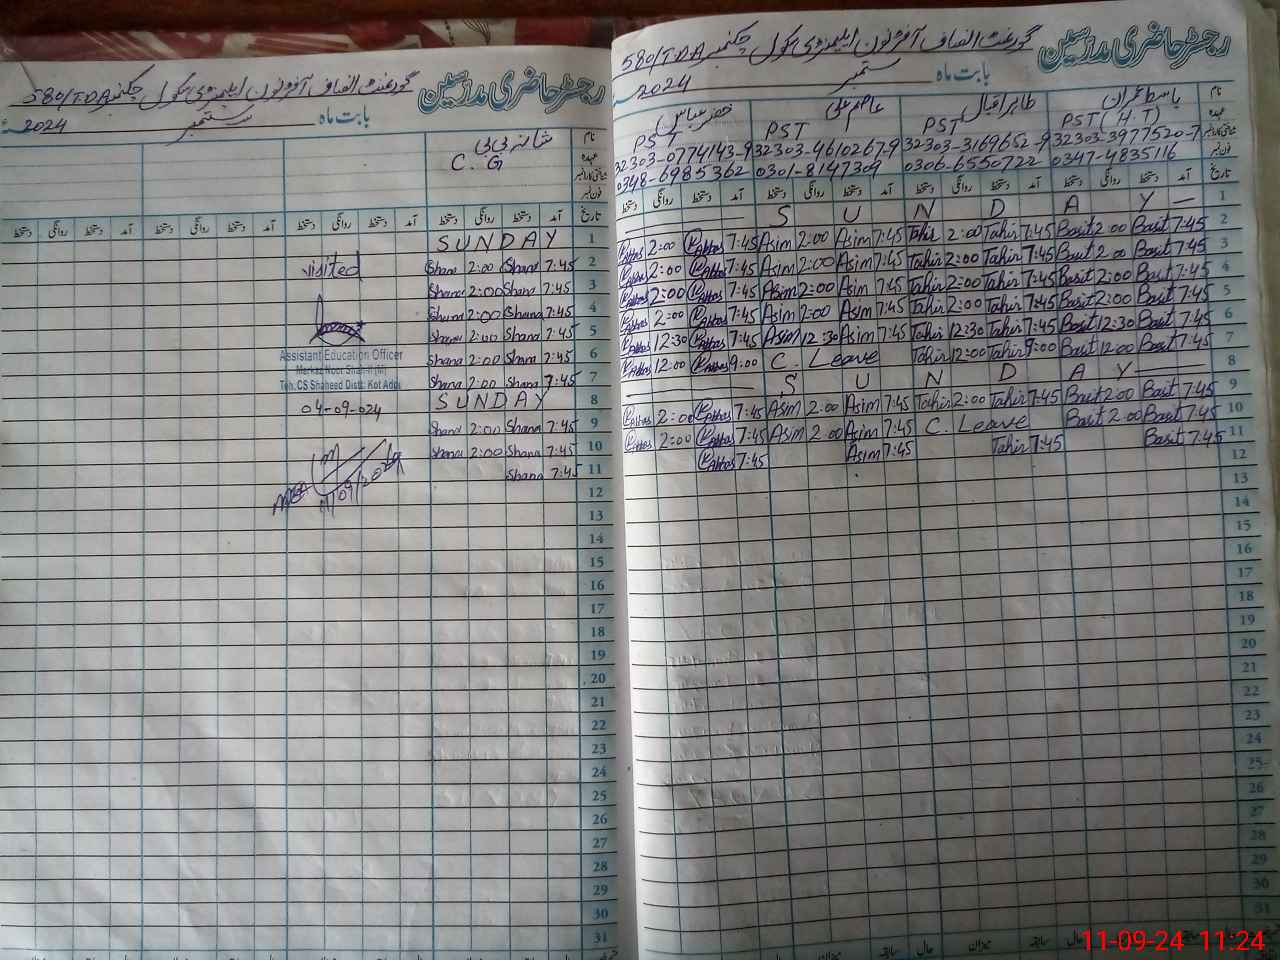 رجسٹر حاضری مدرسین گورنمنٹ الصاف آفٹرنون ایلیمنٹری سکول چکنمبر 580/TDA
بابت ماہ ستمبر 2024
نام شانہ بی بی
عہدہ C. G
شناختی کارڈ نمبر
فون نمبر
تاریخ آمد دستخط روانگی دستخط آمد دستخط روانگی دستخط آمد دستخط روانگی دستخط آمد دستخط روانگی دستخط
1 SUNDAY
2 7:45 Shana 2:00 Shana
visited
3 7:45 Shana 2:00 Shana
4 7:45 Shana 2:00 Shana
5 7:45 Shana 2:00 Shana
6 7:45 Shana 2:00 Shana
Assistant Education Officer
Markaz Noor Shah (M)
Teh. CS Shaheed Distt: Kot Addu
7 7:45 Shana 2:00 Shana
8 SUNDAY
04-09-024
9 7:45 Shana 2:00 Shana
10 7:45 Shana 2:00 Shana
11 7:45 Shana
11/09/2024
12
13
14
15
16
17
18
19
20
21
22
23
24
25
26
27
28
29
30
31
رجسٹر حاضری مدرسین گورنمنٹ الصاف آفٹرنون ایلیمنٹری سکول چکنمبر 580/TDA
بابت ماہ ستمبر 2024
نام باسط عمران طاہر اقبال عاصم علی خضر عباس
عہدہ PST (H.T) PST PST PST
شناختی کارڈ نمبر 32303-3977520-7 32303-3169652-9 32303-4610267-9 32303-0774143-9
فون نمبر 0347-4835116 0306-6550722 0301-8147309 0348-6985362
تاریخ آمد دستخط روانگی دستخط آمد دستخط روانگی دستخط آمد دستخط روانگی دستخط آمد دستخط روانگی دستخط
1 SUNDAY
2 7:45 Basit 2:00 Basit 7:45 Tahir 2:00 Tahir 7:45 Asim 2:00 Asim 7:45 Abbas 2:00 Abbas
3 7:45 Basit 2:00 Basit 7:45 Tahir 2:00 Tahir 7:45 Asim 2:00 Asim 7:45 Abbas 2:00 Abbas
4 7:45 Basit 2:00 Basit 7:45 Tahir 2:00 Tahir 7:45 Asim 2:00 Asim 7:45 Abbas 2:00 Abbas
5 7:45 Basit 2:00 Basit 7:45 Tahir 2:00 Tahir 7:45 Asim 2:00 Asim 7:45 Abbas 2:00 Abbas
6 7:45 Basit 12:30 Basit 7:45 Tahir 12:30 Tahir 7:45 Asim 12:30 Asim 7:45 Abbas 12:30 Abbas
7 7:45 Basit 12:00 Basit 9:00 Tahir 12:00 Tahir C. Leave 9:00 Abbas 12:00 Abbas
8 SUNDAY
9 7:45 Basit 2:00 Basit 7:45 Tahir 2:00 Tahir 7:45 Asim 2:00 Asim 7:45 Abbas 2:00 Abbas
10 7:45 Basit 2:00 Basit C. Leave 7:45 Asim 2:00 Asim 7:45 Abbas 2:00 Abbas
11 7:45 Basit 7:45 Tahir 7:45 Asim 7:45 Abbas
12
13
14
15
16
17
18
19
20
21
22
23
24
25
26
27
28
29
30
31
11-09-24 11:24